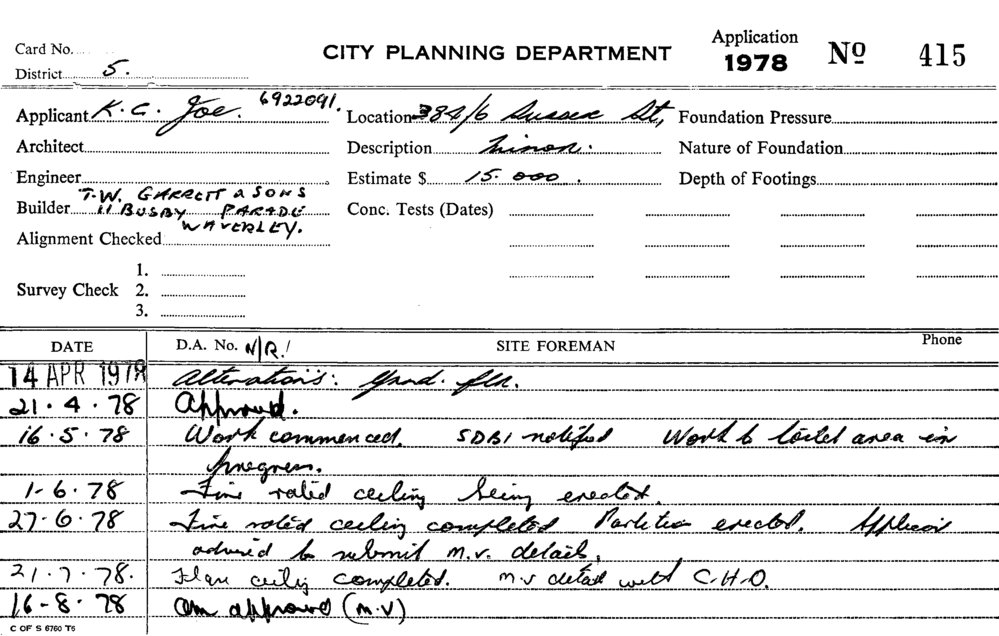 Card No. CITY PLANNING DEPARTMENT Application 1978 No 415
District 5.
Applicant K.C. Joe. 6922091. Location 384/6 Sussex St, Foundation Pressure
Architect Description Minor. Nature of Foundation
Engineer Estimate $ 15.000. Depth of Footings
T.W. GARRETT & SONS
Builder 11 BUSBY PARADE Conc. Tests (Dates)
WAVERLEY.
Alignment Checked
1.
Survey Check 2.
3.
DATE D.A. No. N/R! SITE FOREMAN Phone
14 APR 1978 Alterations: Grnd. flr.
21.4.78 Approved.
16.5.78 Work commenced. SDBI notified Work to toilet area in
progress.
1-6.78 Fire rated ceiling being erected.
27.6.78 Fire rated ceiling completed Partition erected. Applicant
advised to submit m.v. details.
21.7.78. ceiling completed. m.v details with C.H.O.
16-8.78 approved (m.v)
C OF S 6760 T6